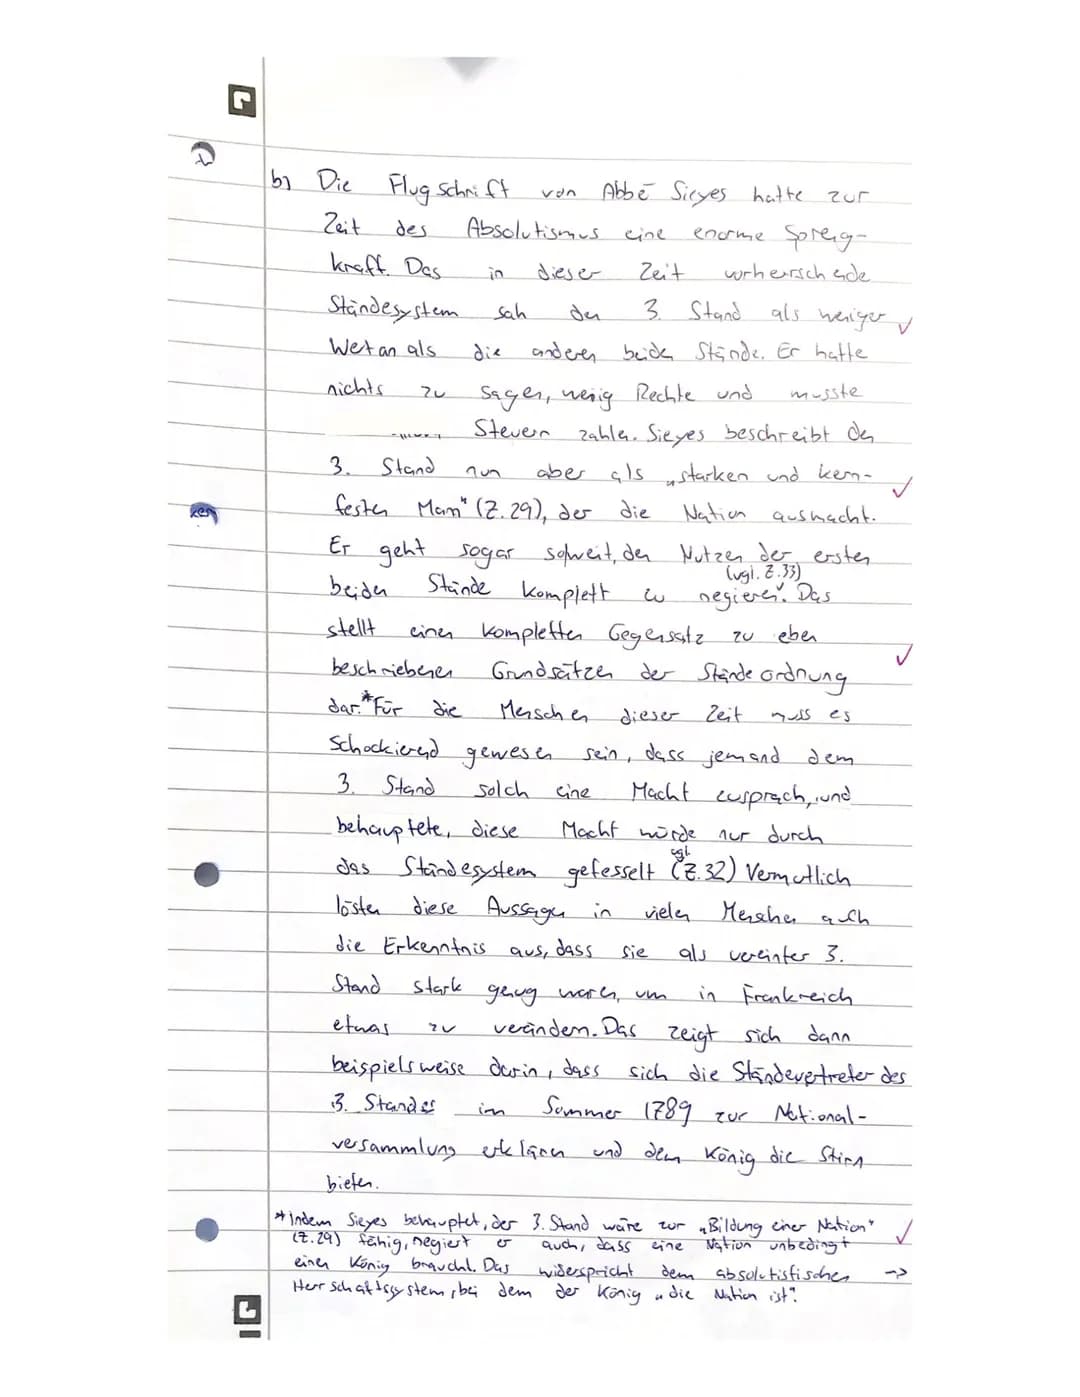 b) Die Flugschrift von Abbé Sieyes hatte zur
Zeit des Absolutismus eine enorme Spreng-
kraft. Das in dieser Zeit vorherrschende
Ständesystem sah den 3. Stand als weniger
Wert an als die anderen beiden Stände. Er hatte
nichts zu sagen, wenig Rechte und musste
Steuern zahlen. Sieyes beschreibt den
3. Stand nun aber als „starken und kern-
festen Mann" (Z. 29), der die Nation ausmacht.
Er geht sogar soweit, den Nutzen der ersten
(vgl. Z.33)
beiden Stände komplett zu negieren. Das
stellt einen kompletten Gegensatz zu eben
beschriebenen Grundsätzen der Ständeordnung
dar.* Für die Menschen dieser Zeit muss es
Schockierend gewesen sein, dass jemand dem
3. Stand solch eine Macht zusprach, und
behauptete, diese Macht würde nur durch
vgl.
das Ständesystem gefesselt (Z.32) Vermutlich
lösten diese Aussagen in vielen Menschen auch
die Erkenntnis aus, dass sie als vereinter 3.
Stand stark genug waren, um in Frankreich
etwas zu verändern. Das zeigt sich dann
beispielsweise darin, dass sich die Ständevertreter des
3. Standes im Sommer 1789 zur National-
versammlung erklären und dem König die Stirn
bieten.
* Indem Sieyes behauptet, der 3. Stand wäre zur „Bildung einer Nation"
(Z.29) fähig, negiert er auch, dass eine Nation unbedingt
einen König braucht. Das widerspricht dem absolutistischen ->
Herrschaftssystem, bei dem der König „die Nation ist".